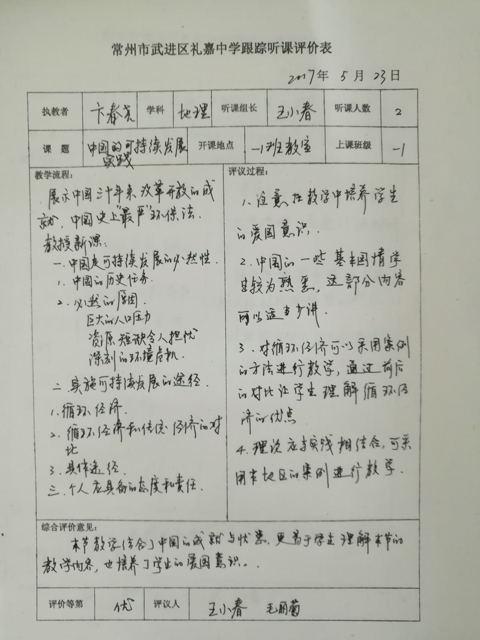 常州市武进区礼嘉中学跟踪听课评价表
2017年 5月 23日
执教者 卞春 学科 地理 听课组长 王小春 听课人数 2
课题 中国的可持续发展实践 开课地点 一1班教室 上课班级 一1
教学流程:
展示中国三十年来改革开放的成
就,中国史上"最严"环保法.
教授新课:
一.中国走可持续发展的必然性.
1.中国的历史任务
2.必然的原因
巨大的人口压力
资源短缺令人担忧
深刻的环境危机.
二.实施可持续发展的途径.
1.循环经济.
2.循环经济和传统经济的对
比
3.具体途径
三.个人应具备的态度和责任.
评议过程:
1.注意在教学中培养学生
的爱国意识.
2.中国的一些基本国情学
生较为熟悉,这部分内容
可以适当少讲.
3.对循环经济可以采用案例
的方法进行教学,通过前后
的对比让学生理解循环经
济的优点
4.理论应与实践相结合,可采
用本地区的案例进行教学.
综合评价意见:
本节教学结合了中国的成就与忧患,更易于学生理解本节的
教学内容,也培养了学生的爱国意识.
评价等第 优 评议人 王小春 毛丽菊